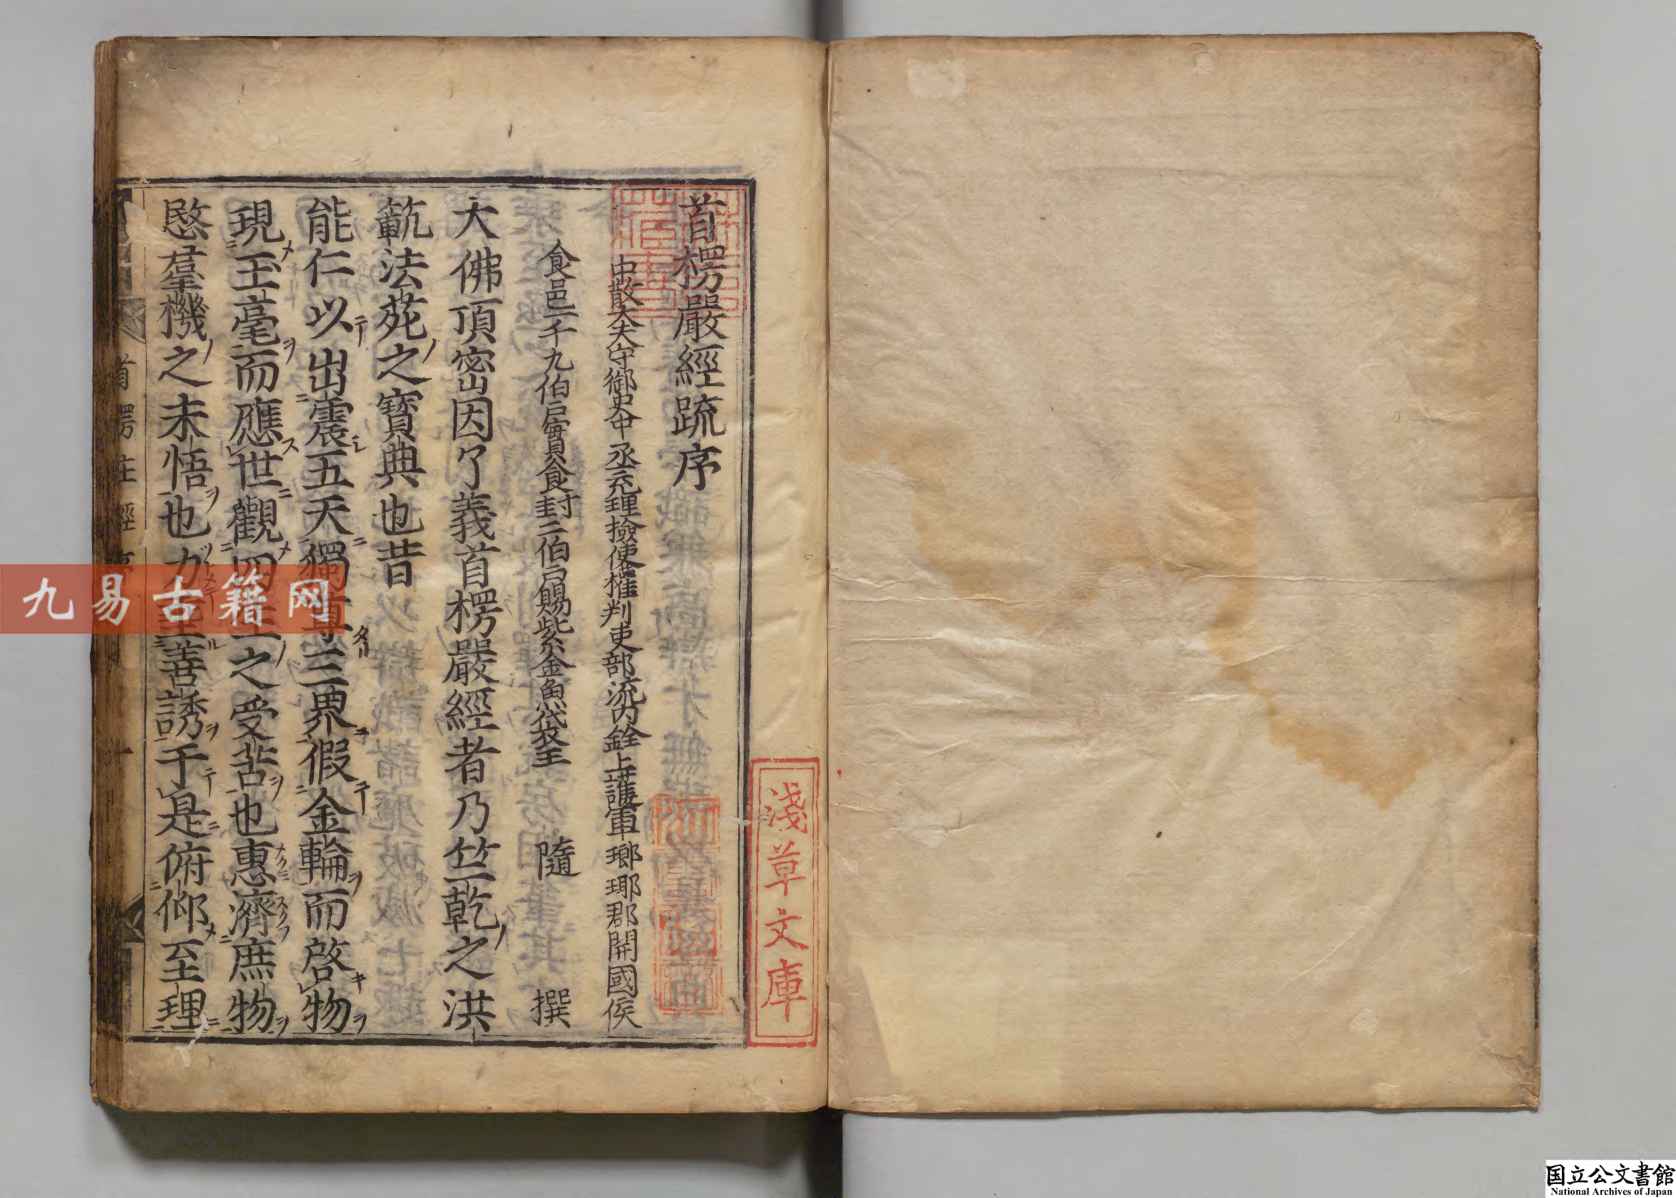 首楞嚴經疏序
中散大夫守御史中丞充理撿使權判吏部流内銓上護軍瑯琊郡開國侯
食邑一千九伯户實食封二伯户賜紫金魚袋王 隨 撰
大佛頂密因了義首楞嚴經者乃竺乾之洪
範法苑之寳典也昔
能仁以出震五天獨尊三界假金輪而啓物
現玉毫而應世觀四生之受苦也惠濟庶物
愍羣機之未悟也力垂善誘于是俯仰至理
首楞 經
淺草文庫
九易古籍网
国立公文書館
National Archives of Japan